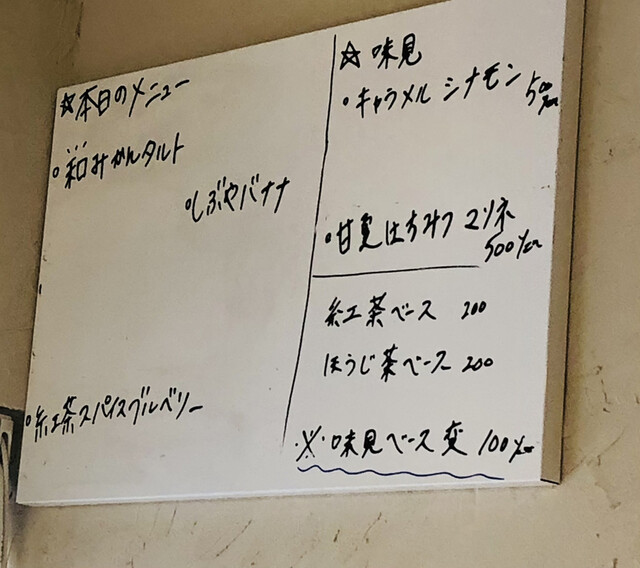 ☆本日のメニュー
・和みかんタルト
・しぶやバナナ
・紅茶スパイスブルベリー
☆味見
・キャラメル シナモン 500
・甘夏はちみつ マリネ
500
紅茶ベース 200
ほうじ茶ベース 200
※味見ベース変 100